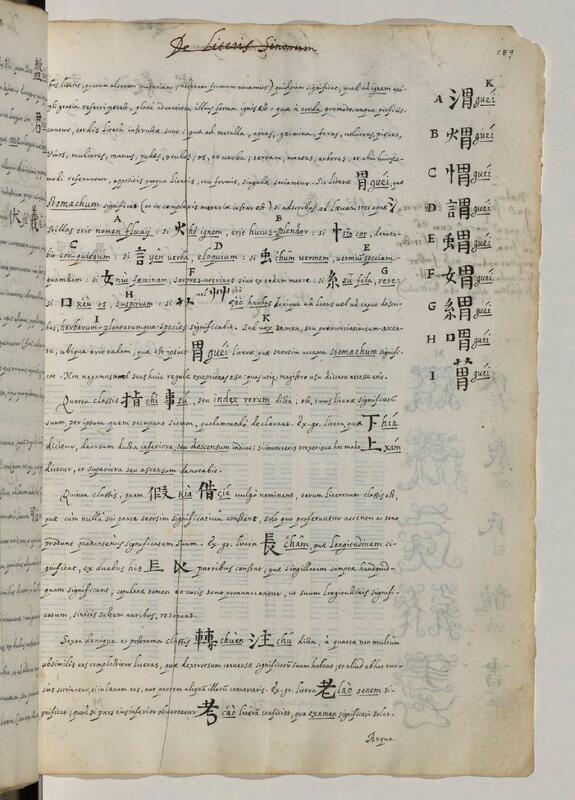 De Literis Sinarum
189
bus literis, quarum alteram materiam, alteram formam vocamus) quidpiam significet, quod ad ignem exem-
pli gratiâ referri potest, planè advenietis illius forma ignis est: quæ à corde quomodocunque proficis-
cuntur, cordis literâ instructa sunt: quæ ad metalla, agros, gramina, feras, volucres, pisces,
viros, mulieres, manus, pedes, oculos, os, et verba; terram, montes, arbores, et alia huiusce-
modi referuntur, appositis quoque literis, ceu formis, singula sociantur. Sic literæ 胃 guéi, quæ
stomachum significat (et in complexis materiæ instar est) si adscribas ad lævam tres aquæ 氵
A B
stillas erit nomen fluvij: si 火 hò ignem, erit huius splendor: si 忄 sin cor, denota-
C D E
bit cor quietum: si 言 yên verba, eloquium: si 虫 chûm vermem, vermium speciem
F G
quamdam: si 女 niù fæminam, sorores uterinas sive ex eadem matre: si 糸 sū fila, rete:
H vel 艸 shi
si 口 kèu os, suspirium: si çào herbas denique ad latus vel ad caput descri-
I K
bis, herbarum plantarumque species significabit. Sed vox tamen, seu pronunciationis accen-
tu, ubique erit eadem, quæ est ipsius 胃 guéi litera quæ seorsim accepta stomachum signifi-
cat. Non negamus tamen suas huic regulæ exceptiones esse: quas usu, magistro usu discere necesse erit.
Quarta classis 指 chì 事 sú, seu index rerum dicta; est, cuius literæ significatū
suum per ipsum quem occupant situm, quodammodò declarant. Ex. gr. litera quæ 下 hiá
dicitur, deorsum ducta inferiora seu descensum indicat: si inverteris erexerisque hoc modo 上 xám
dicetur, et superiora seu ascensum denotabit.
Quinta classis, quam 假 kià 借 çié vulgò nominant, earum literarum classis est,
quæ cùm nullâ sui parte seorsim significativa constent, solo quo proferuntur accentu ac sono
produnt quadantenus significatum suum. Ex. gr. litera 長 châm, quæ longitudinem si-
gnificat, ex duabus his partibus constat, quæ singillatim sumptæ haudquid-
quam significant, copulatæ tamen et vocis sono pronunciantur, ut suum longitudinis signifi-
catum, sinicis saltem auribus, resonent.
Sexta denique et postrema classis 轉 chuèn 注 chú dicta, à quarta non multum
absimilis eas complectitur literas, quæ dextrorsum conversæ significatū suum habent, et aliud ab hoc rur-
sus sortiuntur, si in lævam eas, aut partem aliquā illarū converteris. Ex. gr. litera 老 lào senem si-
gnificat; quod si pars eius inferior obvertatur 考 càò literā conficiet, quæ examen significari solet.
Atque
K
A 渭 guéi
B 煟 guéi
C 㥜 guéi
D 謂 guéi
E 蝟 guéi
F 媦 guéi
G 緭 guéi
H 喟 guéi
I guéi